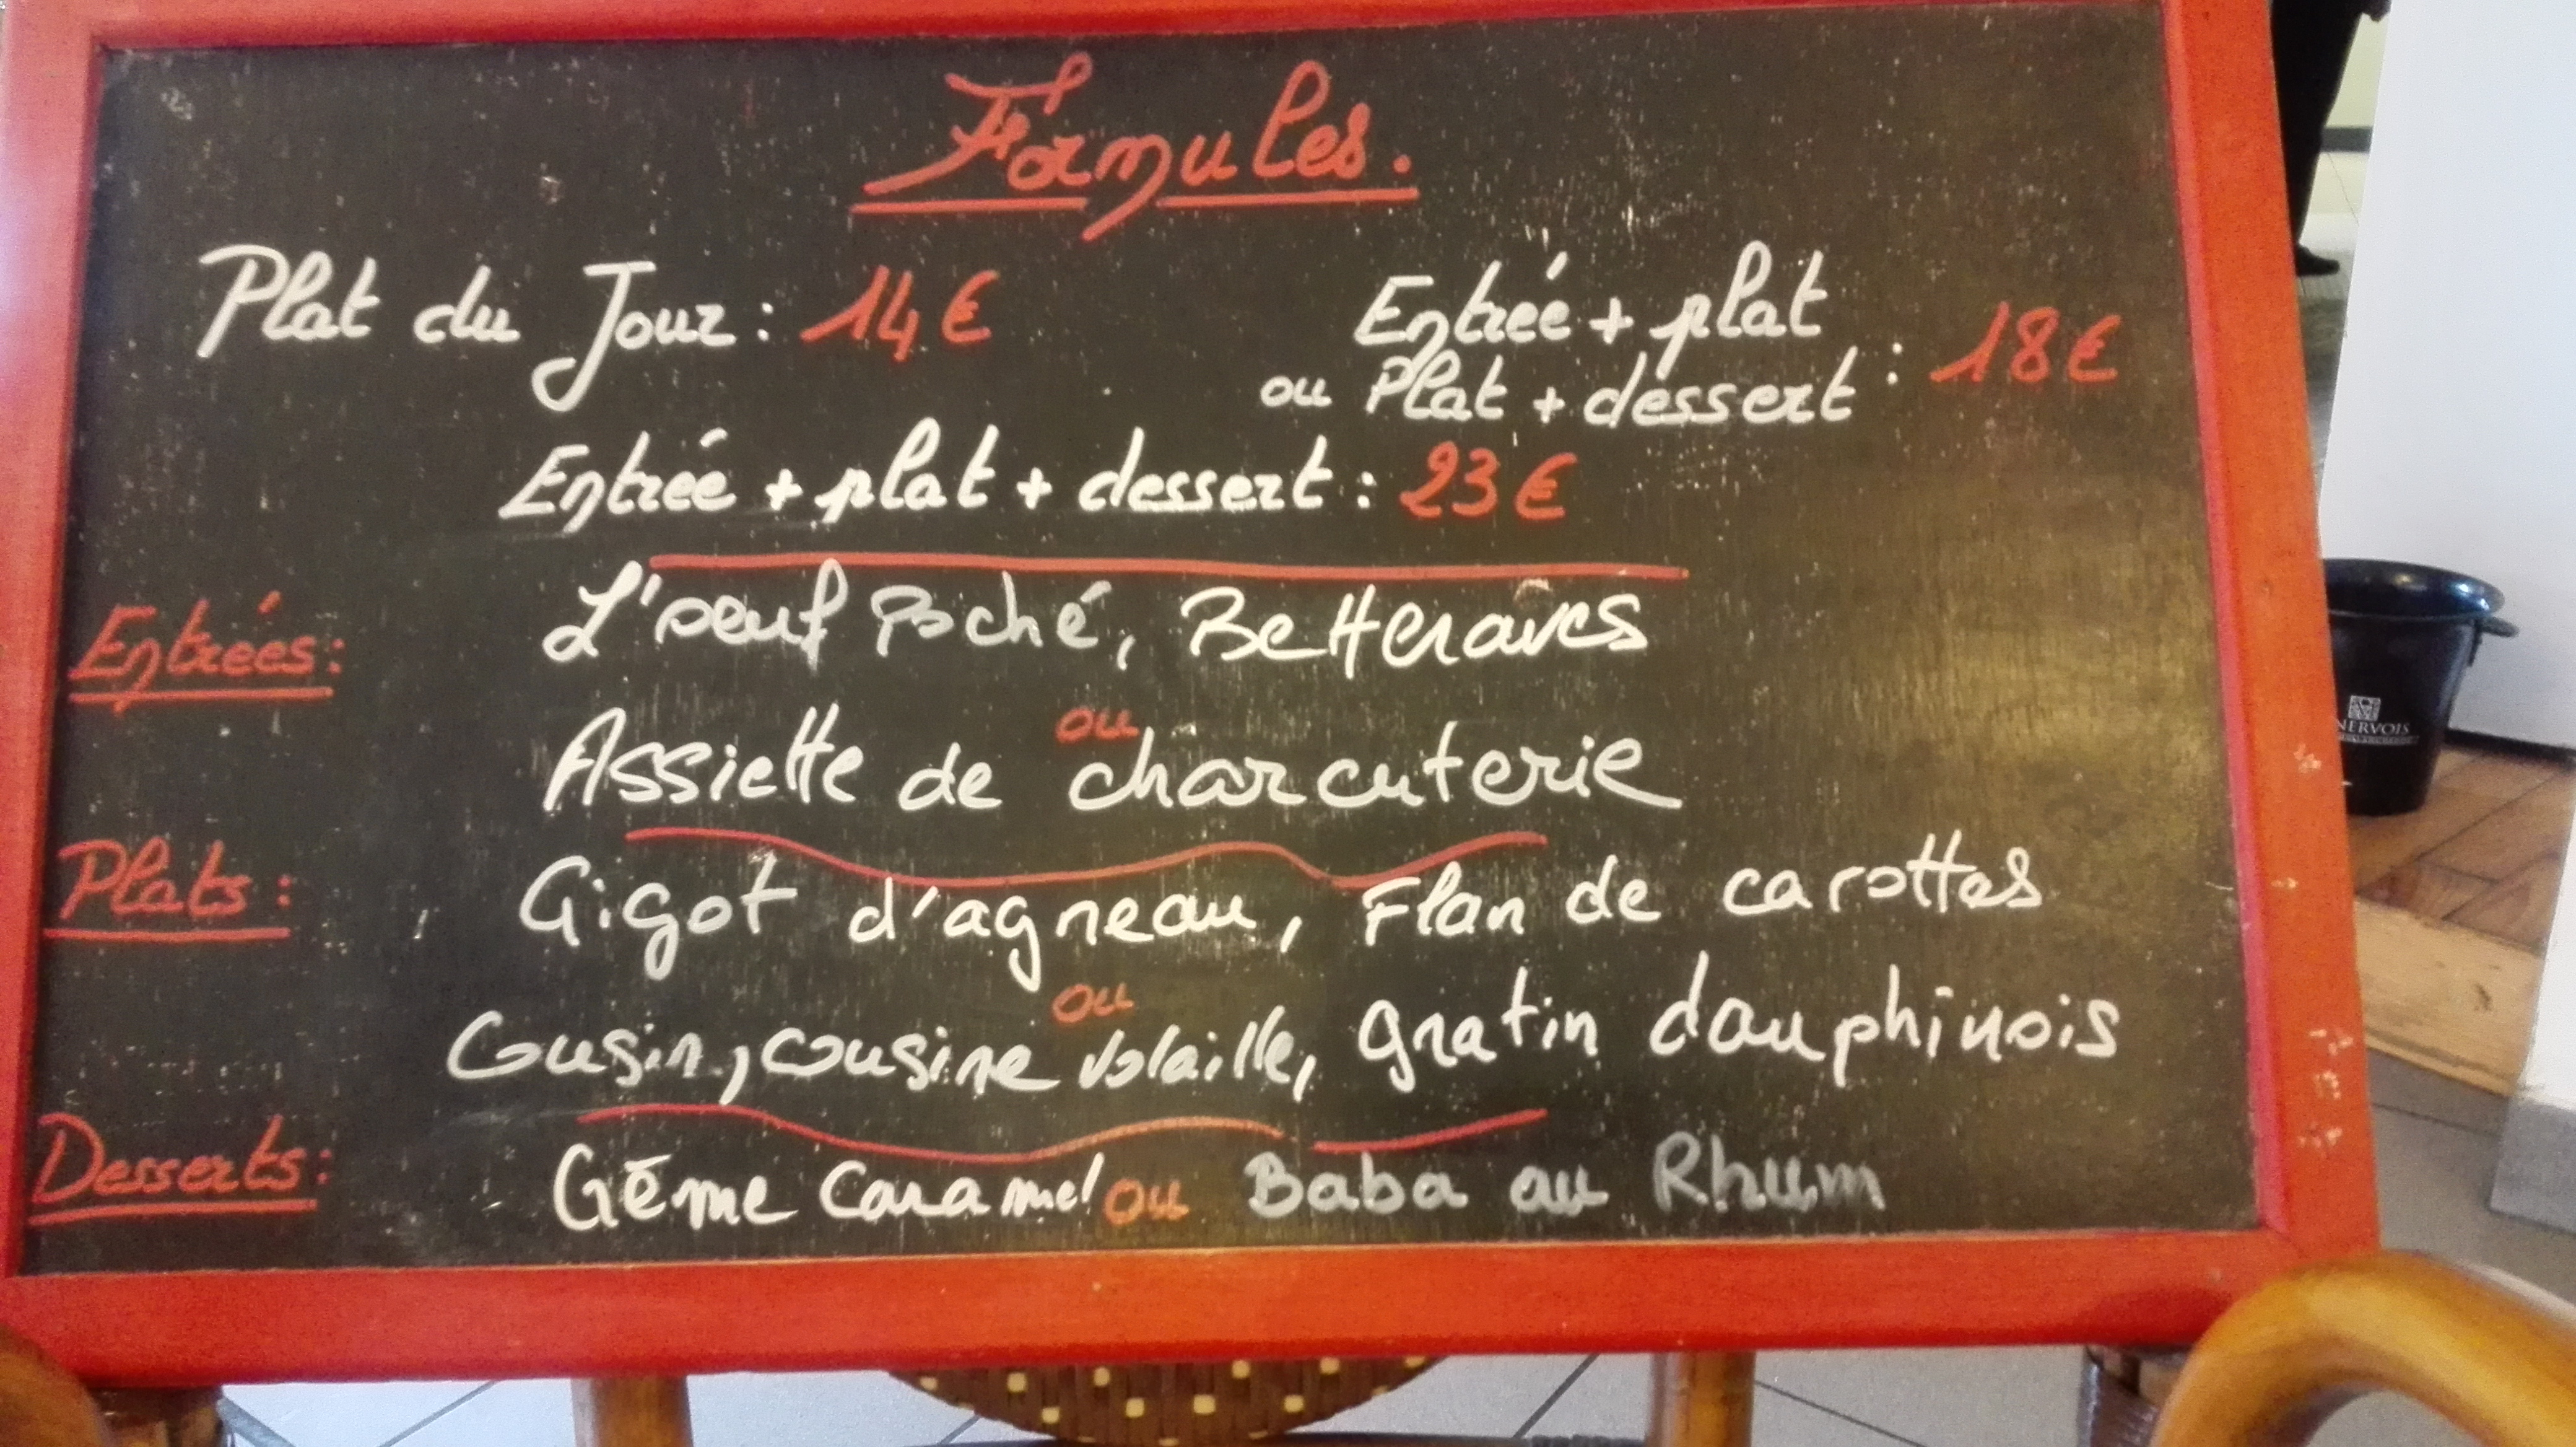 Formules.
Plat du Jour : 14 €
Entrée + plat
ou Plat + dessert : 18 €
Entrée + plat + dessert : 23 €
Entrées :
L'oeuf Poché, Betteraves
ou
Assiette de charcuterie
Plats :
Gigot d'agneau, Flan de carottes
ou
Cousin, cousine volaille, gratin dauphinois
Desserts :
Crème Caramel ou Baba au Rhum
NERVOIS